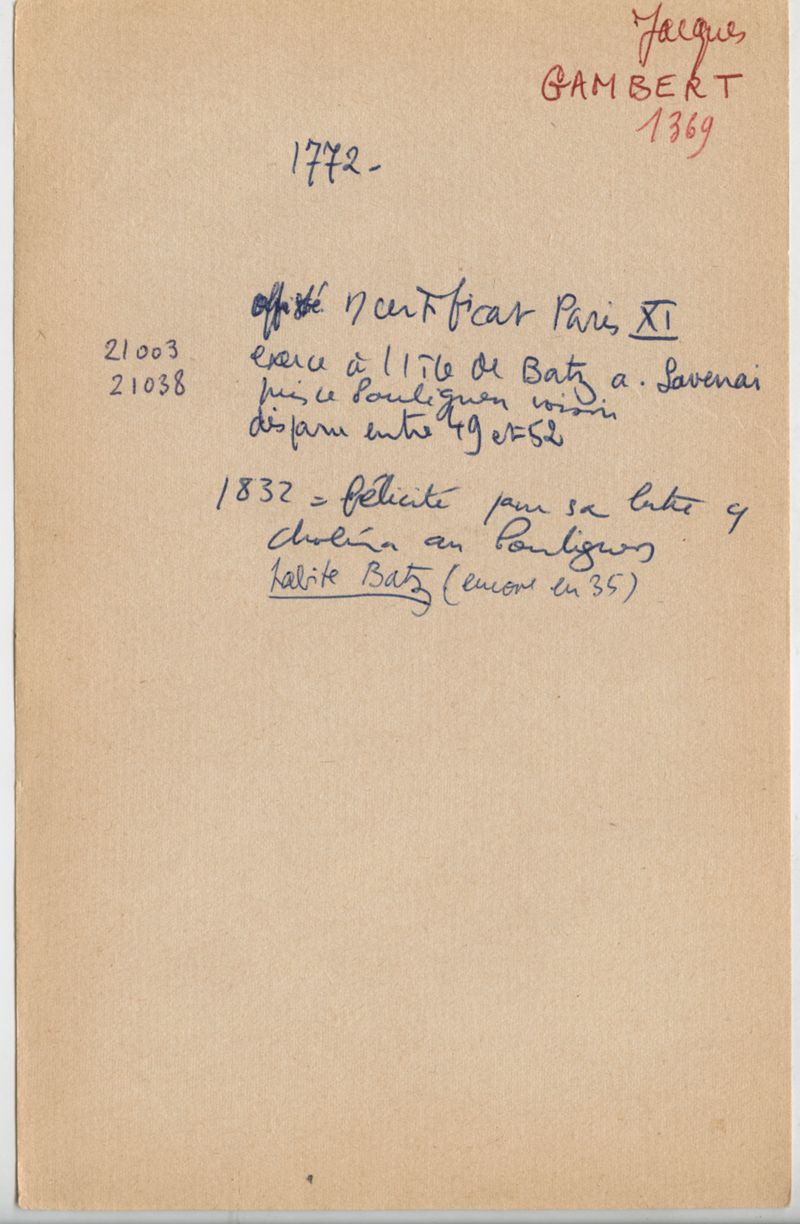 Jacques
GAMBERT
1369
1772 -
certificat Paris XI
21003
21038
exerce à l'île de Batz a. Savenai
puis le Pouliguen voisin
disparu entre 49 et 52
1832 = félicité pour sa lutte
choléra au Pouliguen
habite Batz (encore en 35)